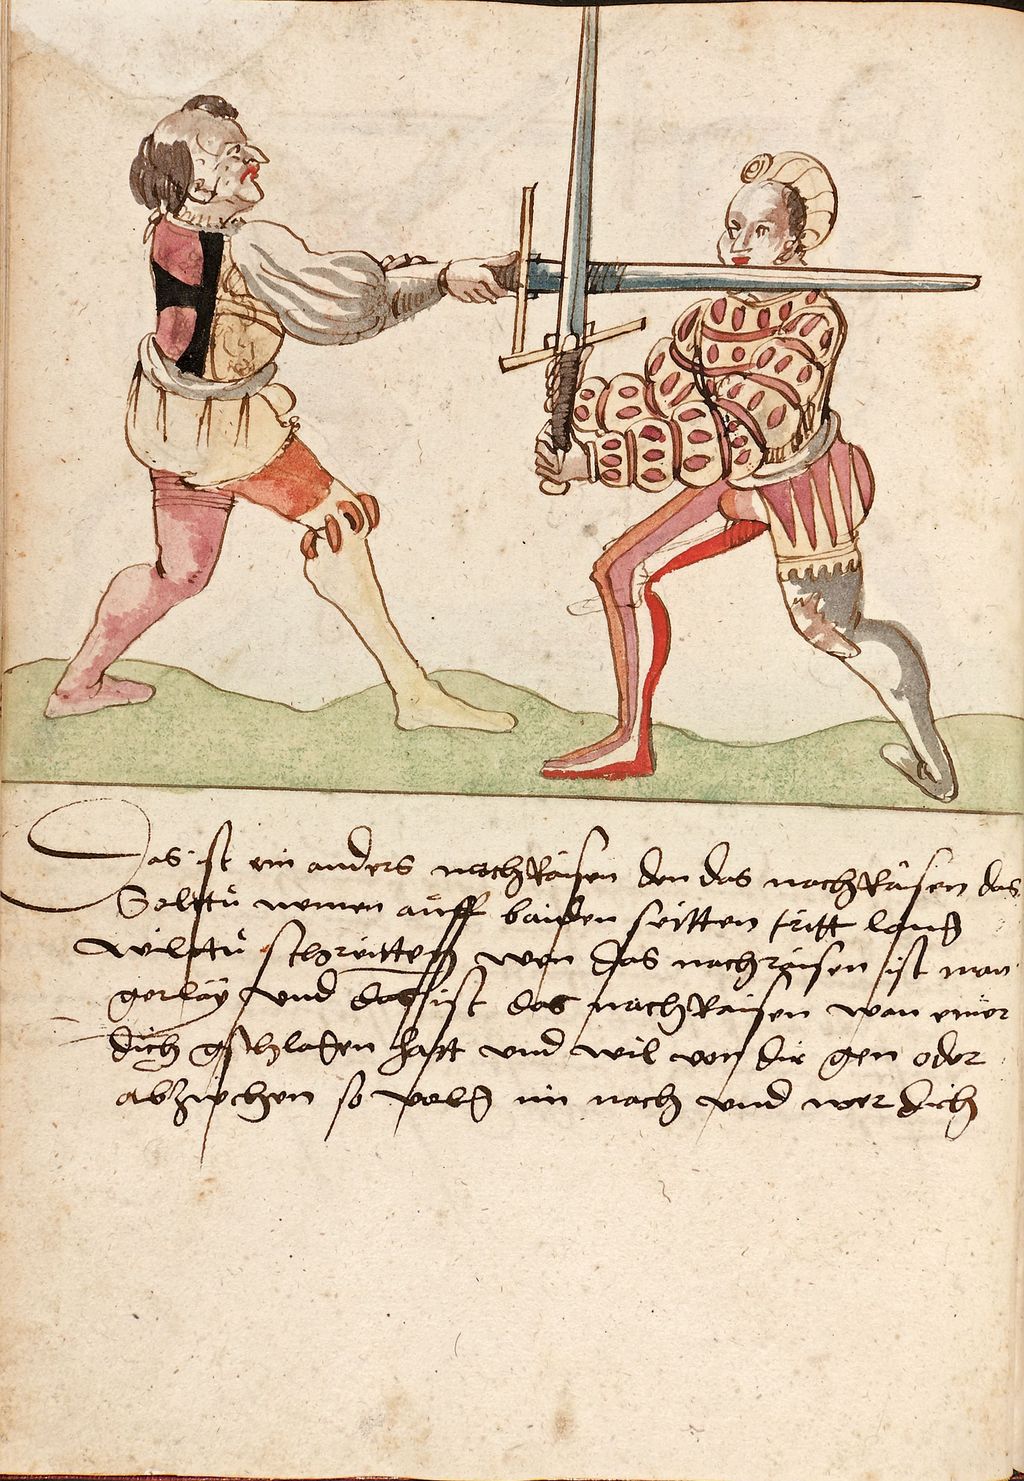 Das ist ein anders nachRaisen den das nachRaisen das
Soltu nemen auff baiden seitten tritt lang
wiltu schreitten wen das nachraisen ist man
gerlay und das ist das nachRaisen wan einer
dich gschlagen hatt und wil von dir gen oder
abziechen so volg im nach und wer dich